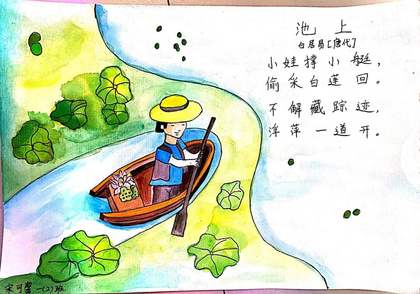 池上
白居易[唐代]
小娃撑小艇，
偷采白莲回。
不解藏踪迹，
浮萍一道开。
一(2)班